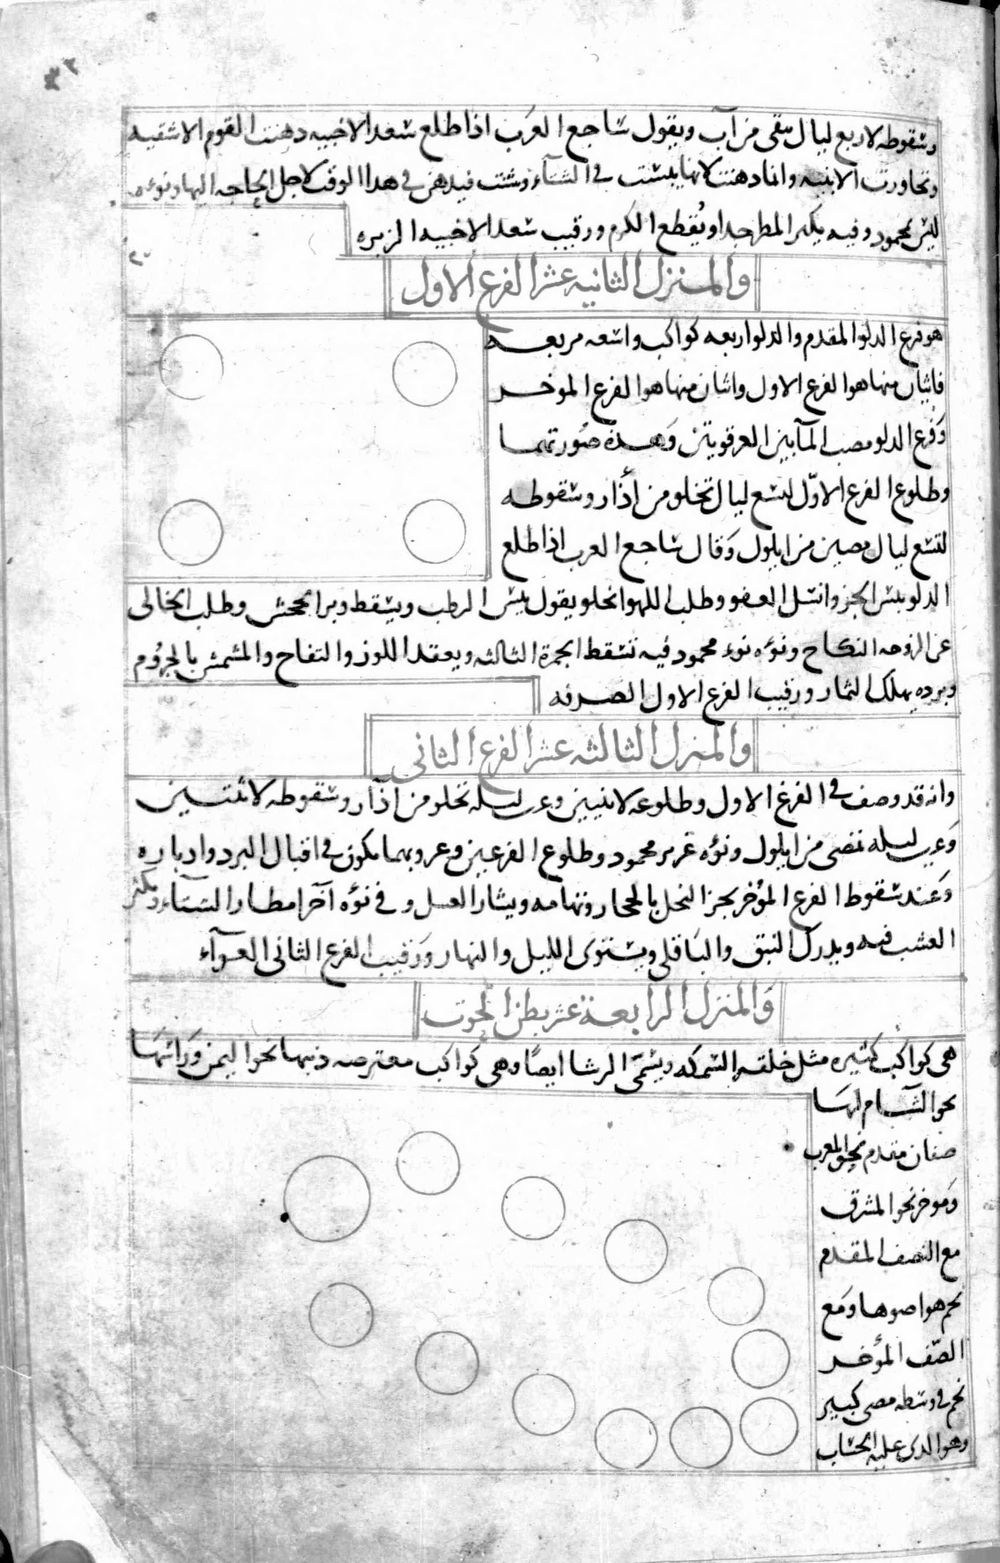 وسقوطه لاربع ليال تبقى من آب ويقول ساجع العرب اذا طلع سعد الاخبيه دهنت الاسقيه
وتجاورت الابنيه وانما دهنت لانها يبست في الشتاء وشننت فيدهن في هذا الوقت لاجل الحاجه اليها ونوءه
ليس بمحمود وفيه يكثر المطر جدا ويقطع الكرم ورقيب سعد الاخبيه الزبره
والمنزل الثانيه عشر الفرغ الاول
هو فرغ الدلو المقدم والدلو اربعه كواكب واسعه مربعه
فاثنان منها هو الفرغ الاول واثنان منها هو الفرغ الموخر
وفرغ الدلو مصب الما بين العرقوتين وهذه صورتهما
وطلوع الفرغ الاوّل لتسع ليال تخلو من اذار وسقوطه
لتسع ليال مضين من ايلول وقال ساجع العرب اذا طلع
الدلو يبس الجزو وانسل العفو وطلب اللهو الخلو يقول يبس الرطب ويسقط وبر الجحش وطلب الخالى
عن الزوجه النكاح ونوءه نوء محمود فيه تسقط الجمرة الثالثه ويعقد اللوز والتفاح والمشمش بالجروم
وبرده يهلك الثمار ورقيب الفرغ الاول الصرفه
والمنزل الثالثه عشر الفرغ الثانى
وانه قد وصف في الفرغ الاول وطلوعه لاثنين وعشرين ليله تخلو من اذار وسقوطه لاثنتين
وعشرين ليله تمضى من ايلول ونوءه غزير محمود وطلوع الفرغين وغروبهما يكون في اقبال البرد وادباره
وعند سقوط الفرغ المؤخر يجز النخل بالحجاز وتهامه ويشار العسل وفي نوءه آخر امطار الشتاء ويكثر
العشب فيه ويدرك النبق والباقلى ويستوى الليل والنهار ورقيب الفرغ الثانى العوآء
والمنزل الرابعة عشر بطن الحوت
هى كواكب كثيره مثل خلقه السمكه ويسمّى الرشا ايضًا وهى كواكب معترضه ذنبها نحو اليمن ورائسها
نحو الشام لها
صفان مقدم نحو المغرب
وموخر نحو المشرق
مع الصف المقدم
نجم هو اضوها ومع
الصّف المؤخر
نجم في وسطه مضى كبير
وهو الذى عليه الحساب